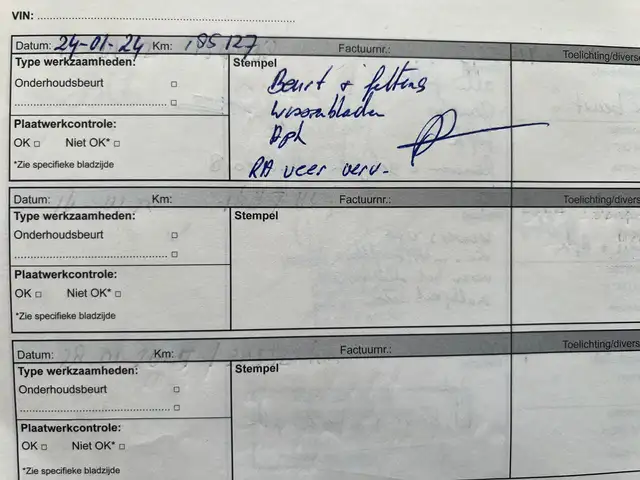 VIN:
Datum: 24-01-24 Km: 195127 Factuurnr.: Toelichting/divers
Type werkzaamheden: Stempel
Onderhoudsbeurt
Beurt + filters
wisserbladen
Apk
RA veer verv.
Plaatwerkcontrole:
OK □ Niet OK* □
*Zie specifieke bladzijde
Datum: Km: Factuurnr.: Toelichting/divers
Type werkzaamheden: Stempel
Onderhoudsbeurt □
Plaatwerkcontrole:
OK □ Niet OK* □
*Zie specifieke bladzijde
Datum: Km: Factuurnr.: Toelichting/divers
Type werkzaamheden: Stempel
Onderhoudsbeurt □
Plaatwerkcontrole:
OK □ Niet OK* □
*Zie specifieke bladzijde